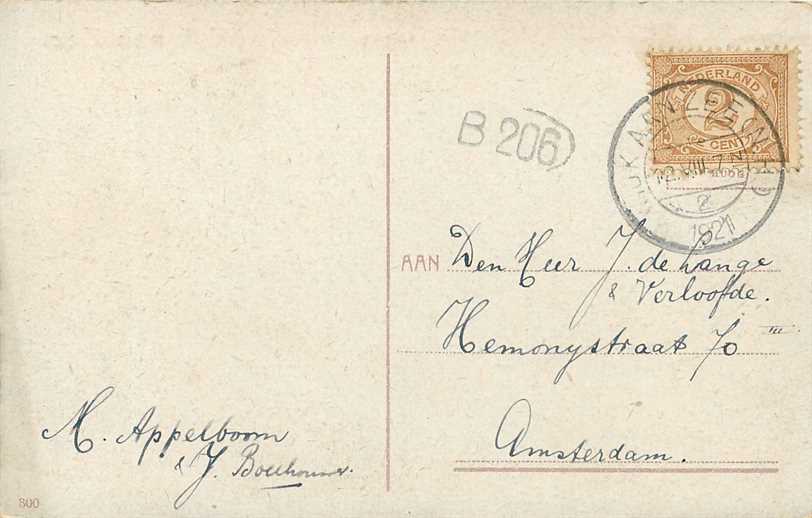 NEDERLAND
2
CENT
B 206
WIJK AAN ZEE
2
1921
AAN Den Heer J. de Lange
& Verloofde.
Hemonystraat 70 III
Amsterdam.
M. Appelboom
& J.
800